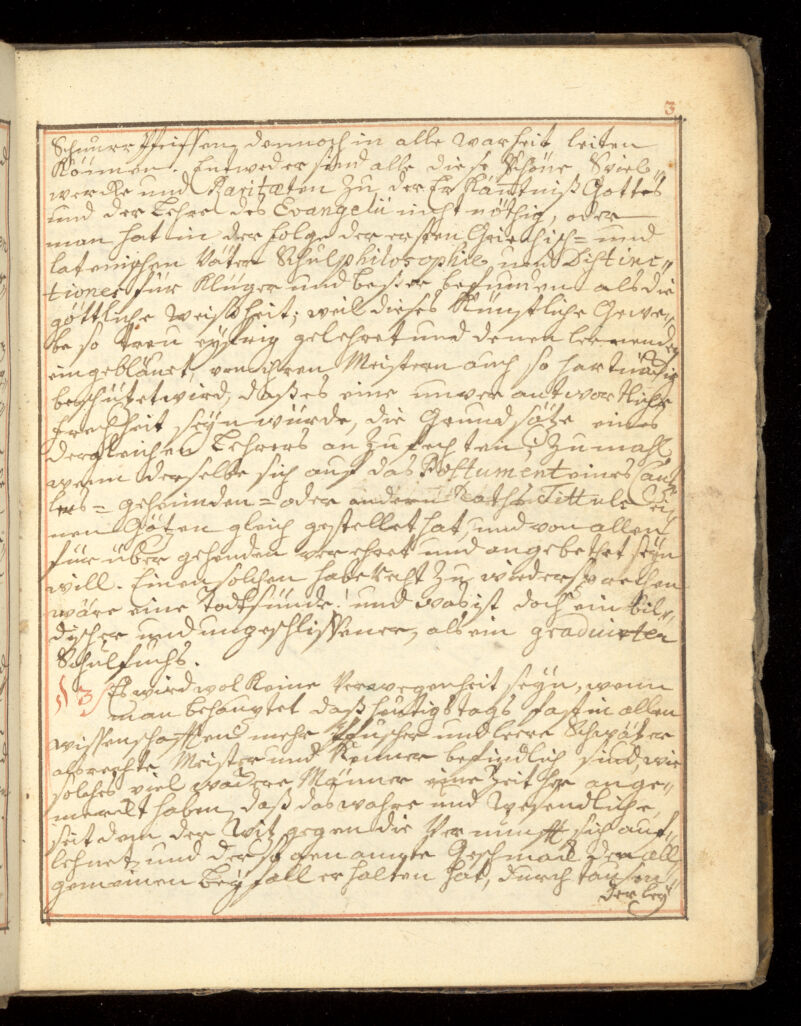 3
Schnurrpfeiffen, dennoch in alle warheit leiten
können. Entweder sind alle diese schöne Spiel-
wercke und Raritæten zu der Erkäntniß Gottes
und der Lehre des Evangelii nicht nöthig, oder
man hat in der folge der ersten Griechisch= und
lateinischen Väter Schulphilosophie und Distinc-
tiones für klüger und beßer befunden als die
göttliche weißheit; weil dieses künstliche Gewe-
be so treu eyffrig gelehret und denen lernenden
eingebläuet, von ihren Meistern auch so hartnäckig
beschützet wird, daß es eine unverantwortliche
frechheit seyn würde, die Grundsätze eines
dergleichen Lehrers anzufechten; zumahl
wenn derselbe sich auf das Postument eines Cantz-
lers= geheimden= oder andern Raths Tittuls ei-
nen Götzen gleich gestellet hat, und von allen
fürüber gehenden verehret und angebethet seyn
will. Einen solchen habe recht zu wiedersprechen
wäre eine Todtsünde! und was ist doch ein bil-
discher und ungeschlissener, als ein graduirten
Schulfuchs.
§ 3 Es wird wol keine Verwegenheit seyn, wenn
man behauptet daß heutigs tags fast in allen
wissenschafften mehr Pfuscher und leere Schwätzer
als rechte Meister und Kenner befindlich sind, wie
solches viel wackere Männer eine Zeit her ange-
merckt haben, daß das wahre und wesendliche,
seit dem der Witz gegen die Vernunfft sich auf-
lehnet, und der so genannte Geschmack den all-
gemeinen beyfall erhalten hat, durch tausen-
derley